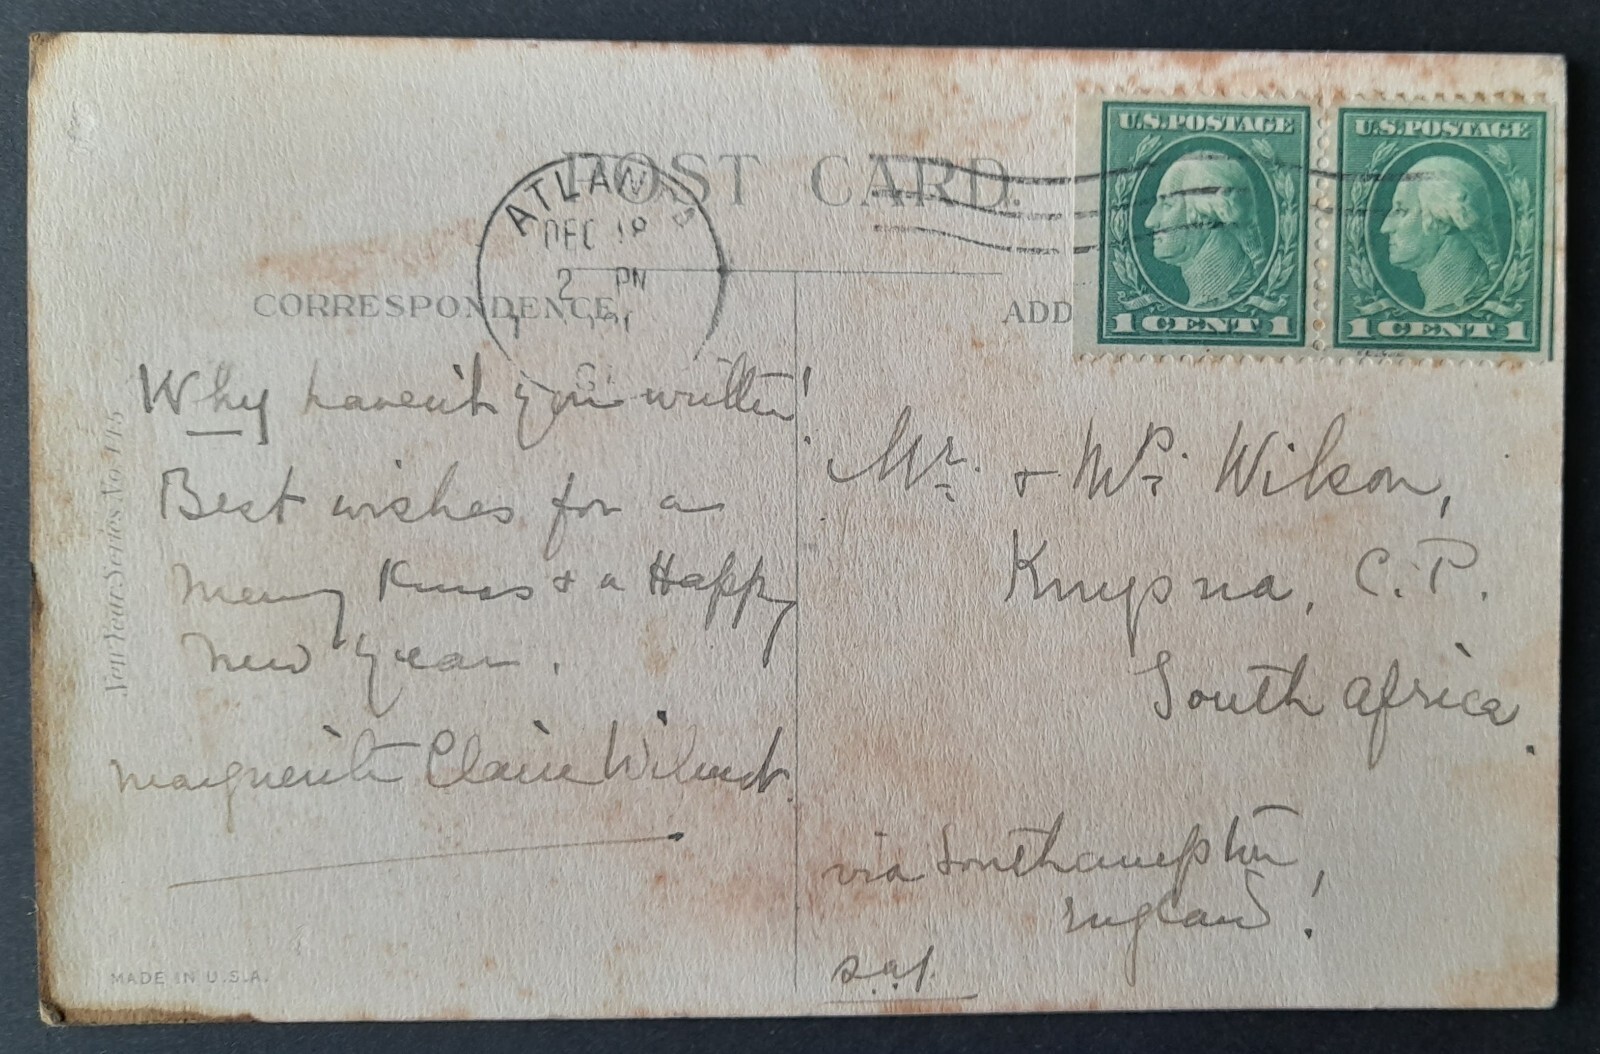 POST CARD.
ATLANTA
DEC 18
2 PM
GA
U.S. POSTAGE
1 CENT 1
U.S. POSTAGE
1 CENT 1
CORRESPONDENCE
ADD
Why haven't you written!
Best wishes for a
Merry Xmas & a Happy
New Year.
Marguerite Claire
Mr. & Mrs. Wilson,
Knysna, C.P.
South Africa.
via Southampton,
England!
New Year Series No. 145
MADE IN U.S.A.